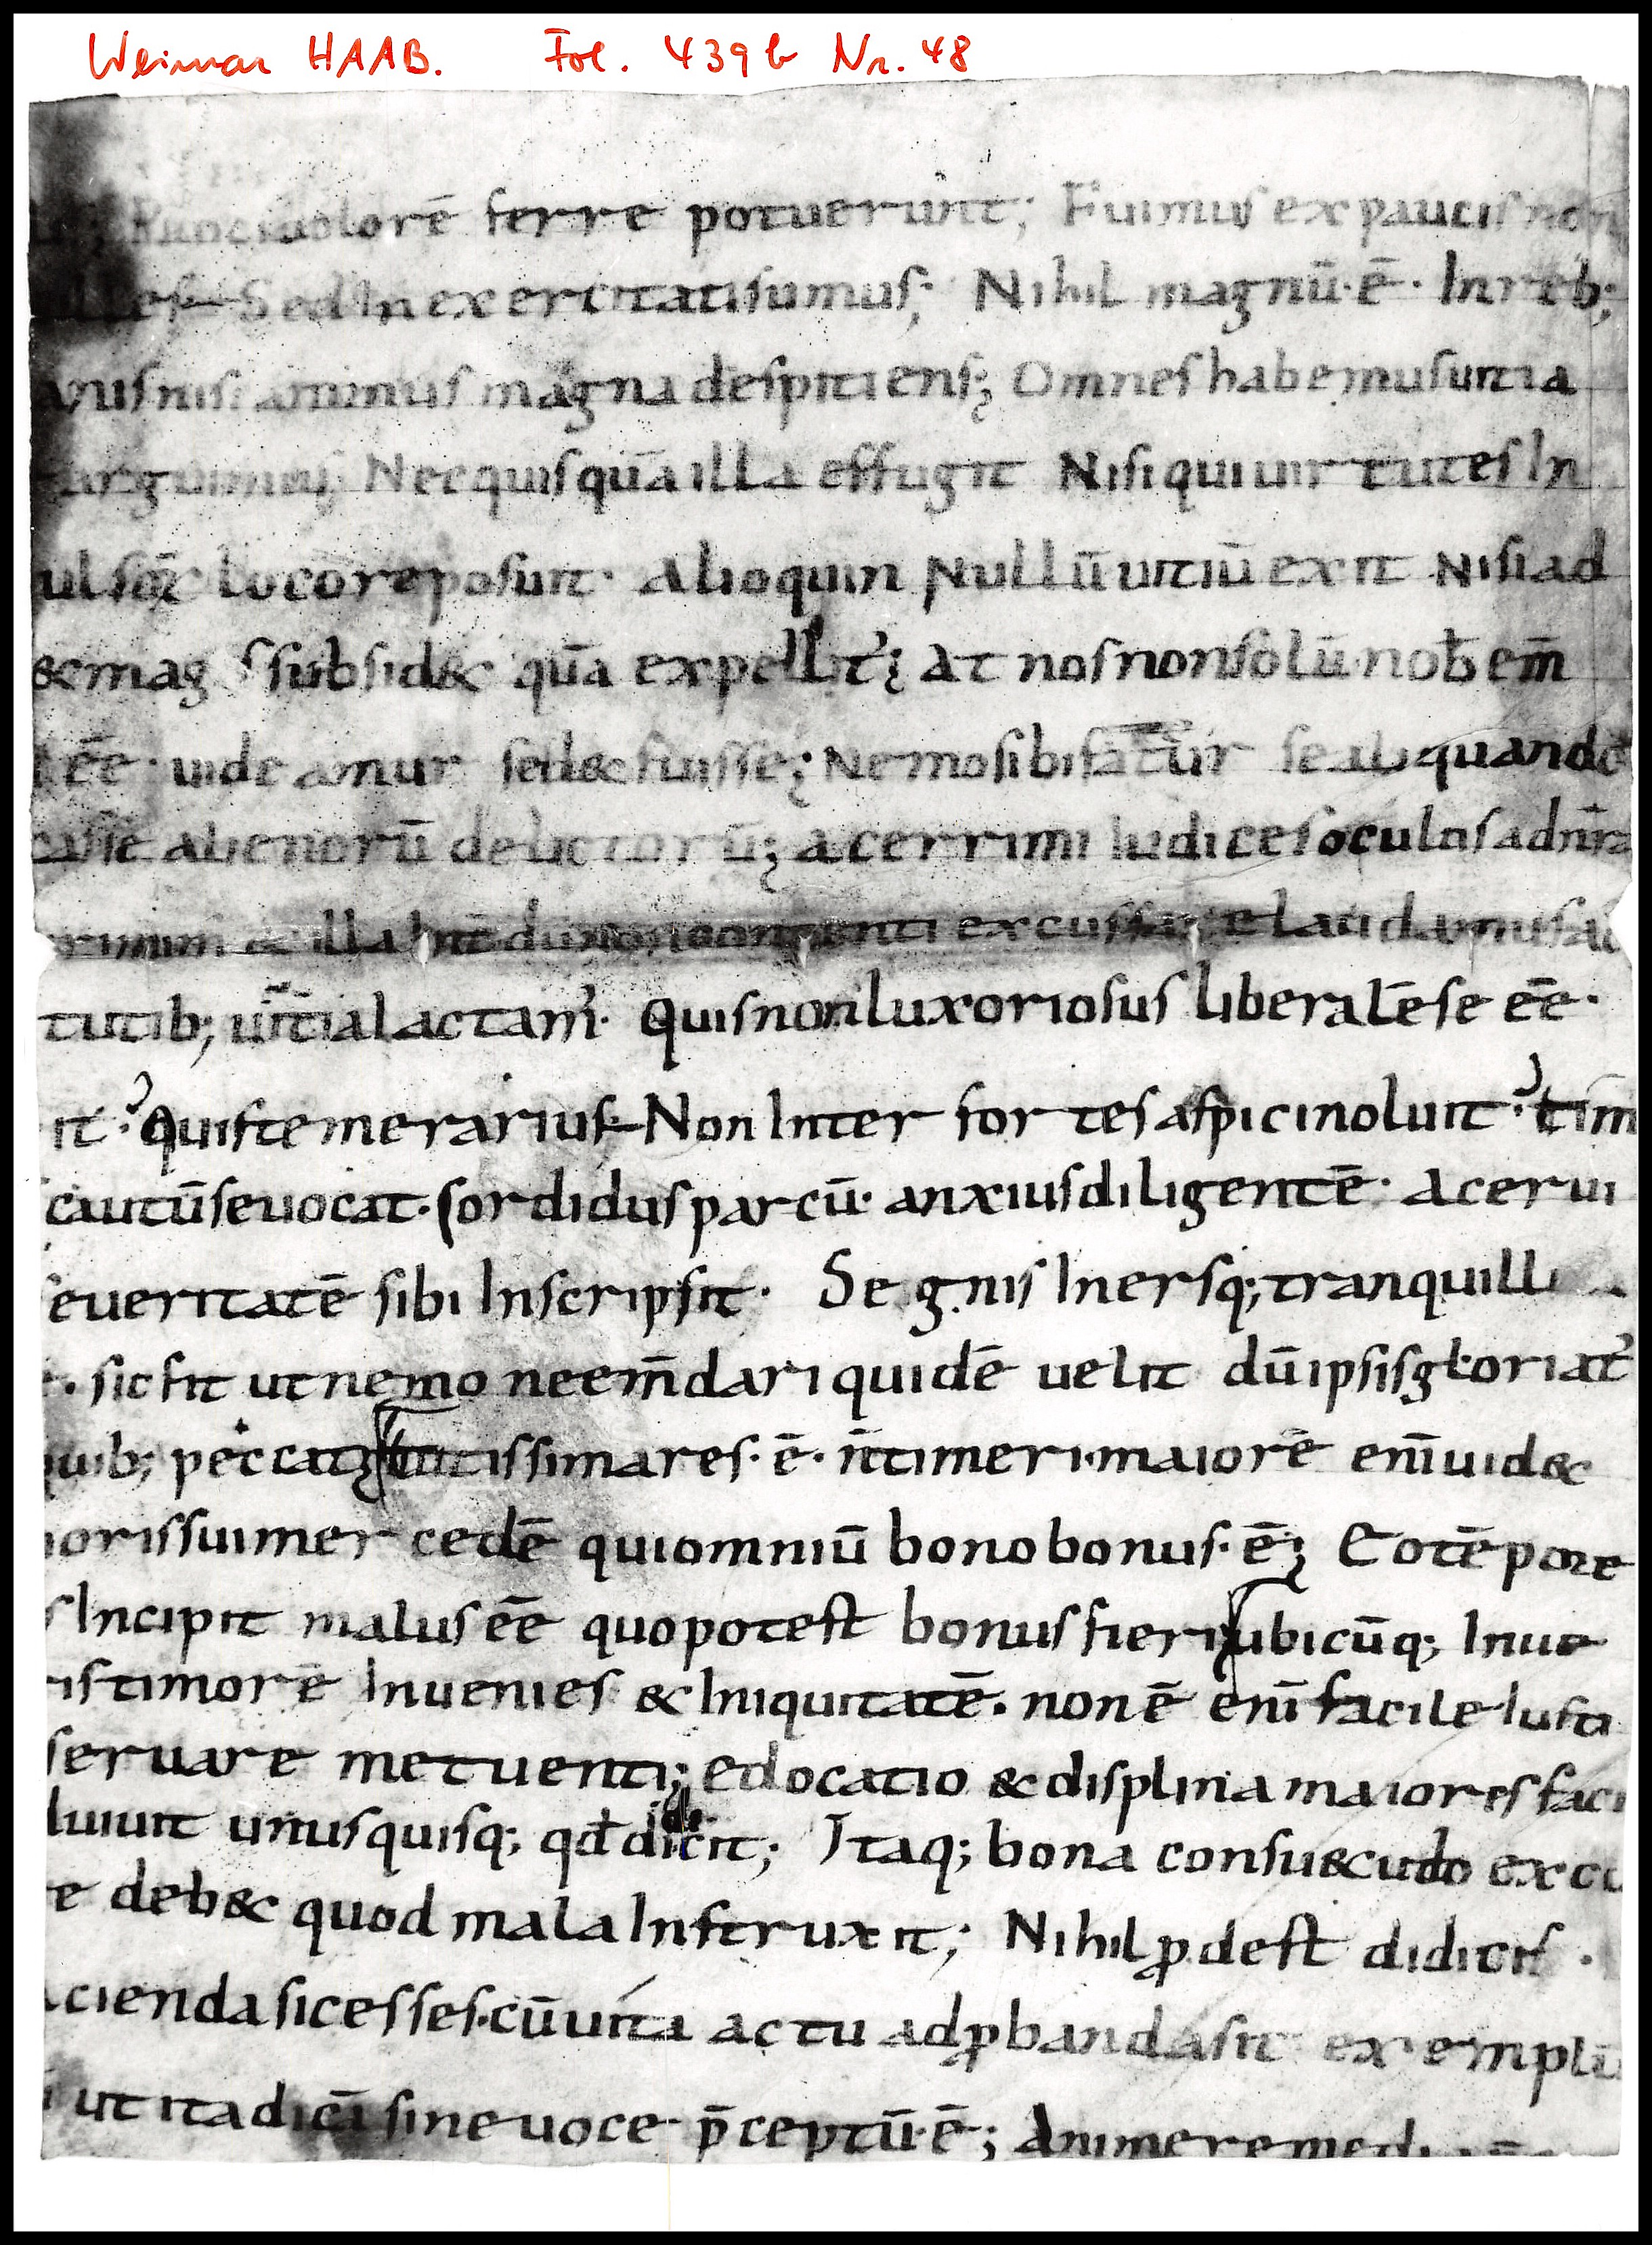 Weimar HAAB. Fol. 439b Nr. 48
dolorē ferre potuerunt; Fuimus ex paucis non
Sed In exercitati sumus; Nihil magnū · ē · In reb;
nisi animus magna despiciens; Omnes habemus uitia
arguimus Nec quisquā illa effugit Nisi qui uirtutes In
loco reposuit · Alioquin Nullū uitiū exit Nisi ad
& mag s subsid& quā expellit᷑; At nos non solū nob em̄
ēē · uideamur sed& fuisse; Nemo sibi fatur se aliquando
asse alienorū delictorū; acerrimi Iudices ocultis ad nr̄a
& illa dū non contenti elati damus
tutib; uitia lactam᷑ · Quis non luxoriosus liberalē se ēē ·
it · ? Quis temerarius Non Inter fortes aspici noluit · ? tim
cautū se uocat · sordidus parcū · anxius diligentē · Acerui
seueritatē sibi Inscripsit · Segnis Inersq; tranquilli
· sic fit ut nemo neem̄dari quidē uelit dū ipsis gloriat᷑
quib; peccat; tutissima res · ē · n̄ timeri · maiorē enī uid&
oris sui mercedē qui omniū bono bonus · ē; Eo tē pore
s Incipit malus ēē quo potest bonus fieri ubicūq; Inue
is timorē Inuenies & Iniquitatē · non ē enī facile Iusti
seruare metuenti; edocatio & displina maiores faci
luiuit unusquisq; qđ dicit; Itaq; bona consu&udo excu
e deb& quod mala Instruxit; Nihil ꝓdest didicis ·
cienda sic esses · cū uita actu adꝓbanda sit exemplū
ut ita dicā sine uoce p̄ceptū · ē; Anime remedi